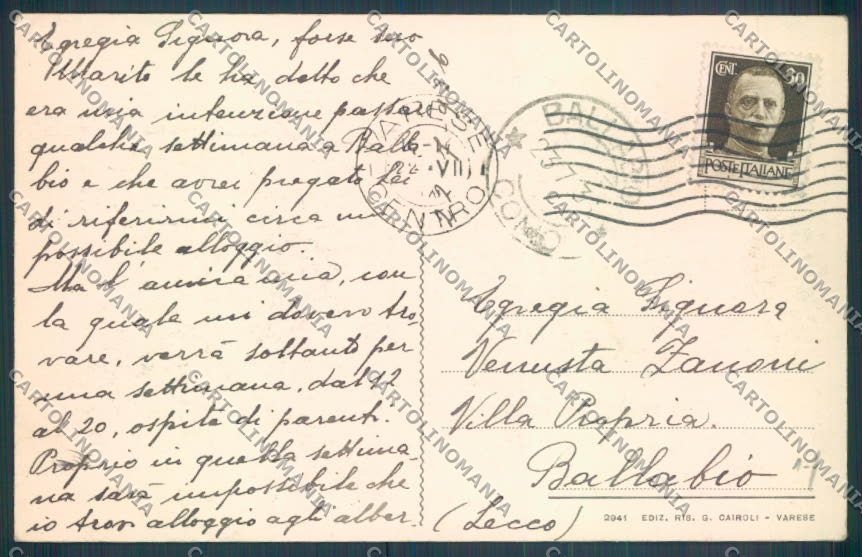 Egregia Signora, forse suo
Marito le ha detto che
era mia intenzione passare
qualche settimana a Balla
bio e che avrei pregato Lei
di riferirmi circa un
possibile alloggio.
Ma l'amica mia, con
la quale mi dovevo tro-
vare, verrà soltanto per
una settimana, dal 12
al 20, ospite di parenti.
Proprio in quella settima
na sarà impossibile che
io trovi alloggio agli alber-
VARESE
CENTRO
BALLABIO
COMO
CENT. 30
POSTE ITALIANE
Egregia Signora
Venusta Zanoni
Villa Propria.
Ballabio
(Lecco)
2941 EDIZ. RIS. G. CAIROLI - VARESE
CARTOLINOMANIA